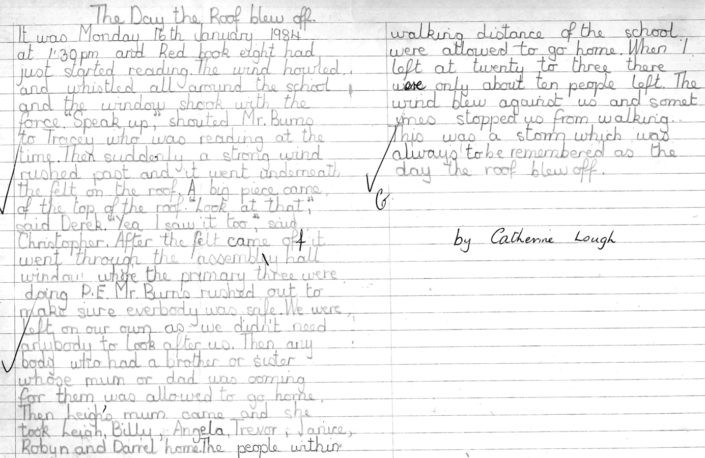 The Day the Roof blew off.
It was Monday 16th January 1984
at 1:30pm and Red book eight had
just started reading. The wind howled
and whistled all around the school
and the window shook with the
force. "Speak up," shouted Mr. Burns
to Tracey who was reading at the
time. Then suddenly a strong wind
rushed past and it went underneath
the felt on the roof. A big piece came
of the top of the roof. "Look at that,"
said Derek. "Yea I saw it too," said
Christopher. After the felt came off it
went through the assembly hall
window where the primary three were
doing P.E. Mr. Burns rushed out to
make sure everbody was safe. We were
left on our own as we didn't need
anybody to look after us. Then any
body who had a brother or sister
whose mum or dad was coming
for them was allowed to go home.
Then Leigh's mum came and she
took Leigh, Billy, Angela, Trevor, Janice,
Robyn and Darrel home. The people within
walking distance of the school
were allowed to go home. When I
left at twenty to three there
were only about ten people left. The
wind blew against us and somet
imes stopped us from walking.
This was a storm which was
always to be remembered as the
day the roof blew off.
G
by Catherine Lough